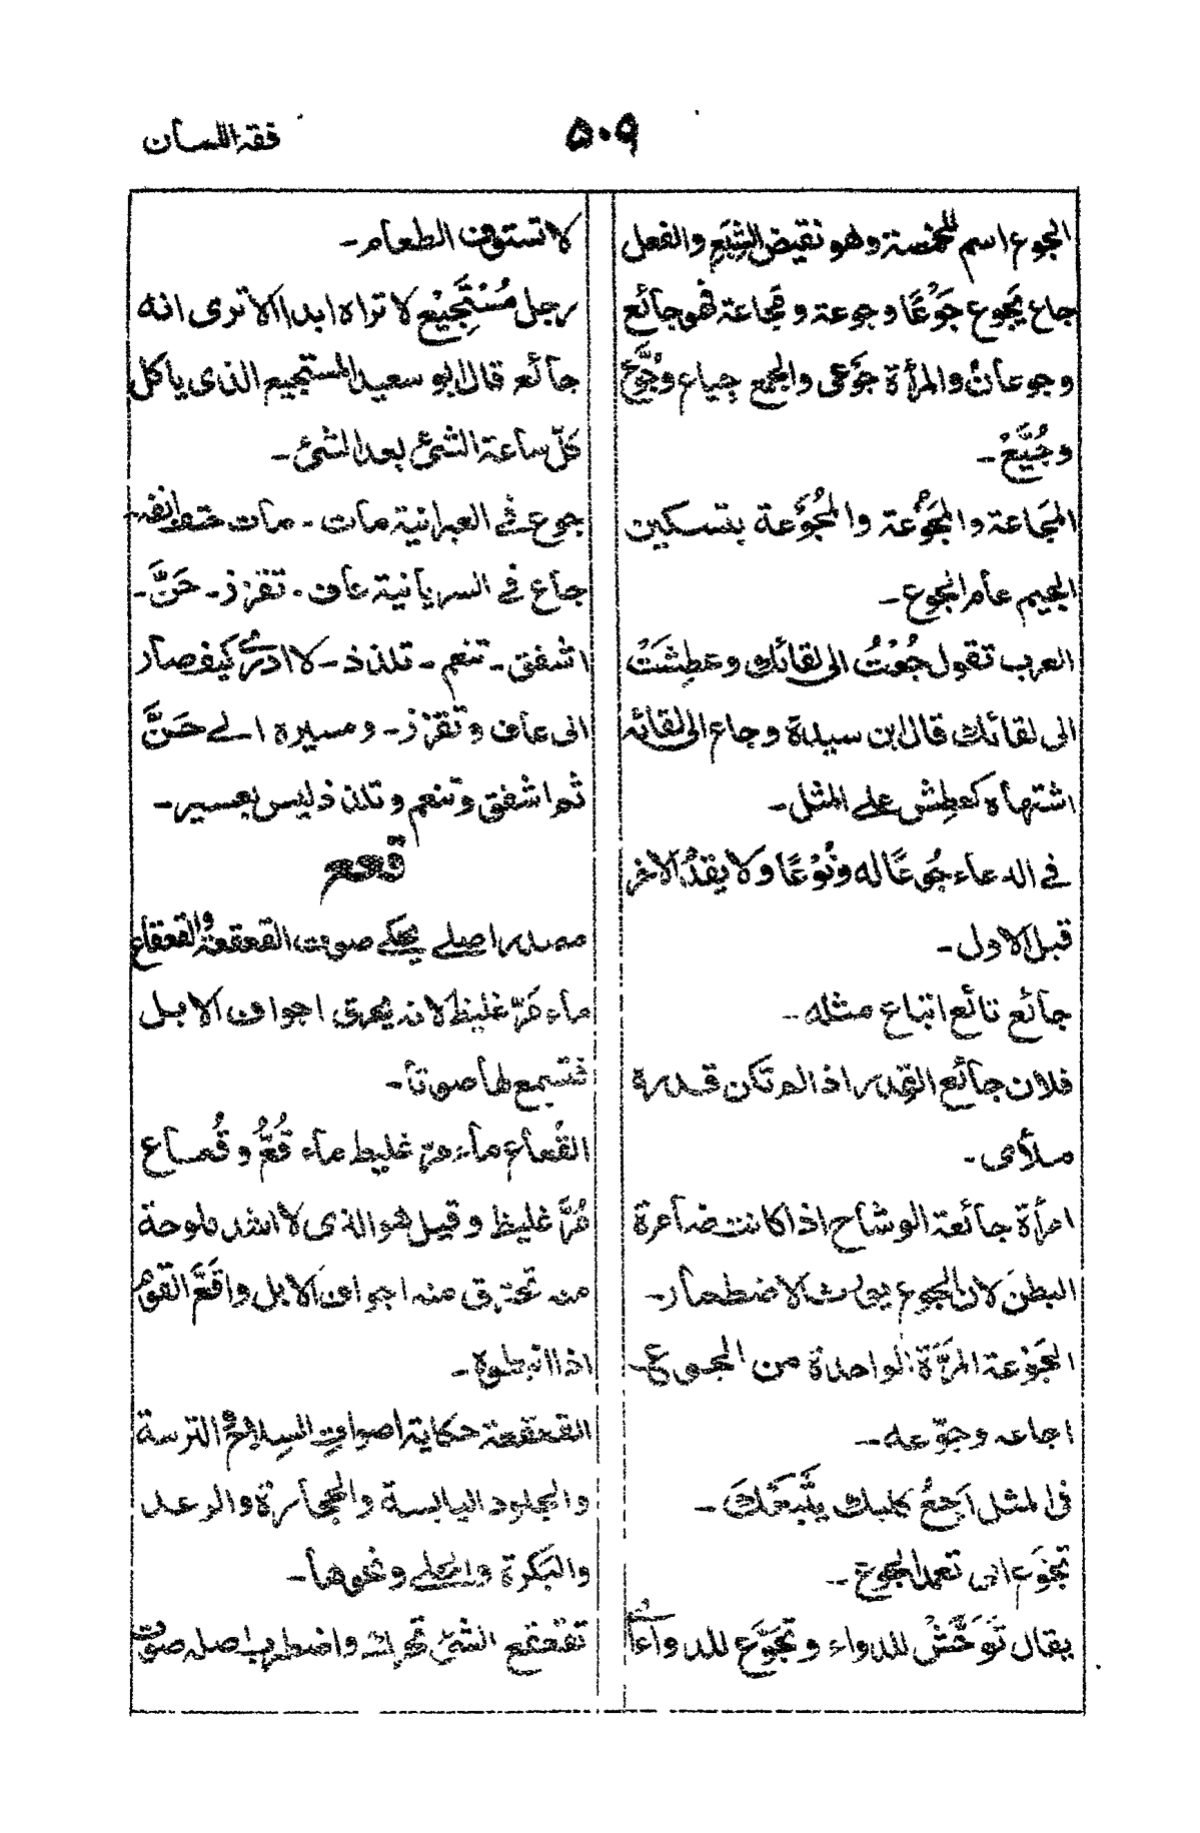 فقہ اللسان
۵۰۹
الجوع اسم للمخمصة وهو نقيض الشِبَع والفعل
جاع يَجوع جَوْعًا وجوعة ومجاعة فهو جائع
وجوعانُ والمرأة جَوْعى والجمع جياع وجُوَّعٌ
وجُيَّعٌ۔
المَجاعة والمَجُوْعة والمَجْوَعة بتسكين
الجيم عام الجوع۔
العرب تقول جُعْتُ الى لقائك وعطِشَتُ
الى لقائك قال ابن سيدة وجاع الى لقائه
اشتهاه كعطِش على المثل۔
فى الدعاء جُوعًا له ونُوْعًا ولا يقدَّم الآخر
قبل الاول۔
جائع نائع اتباع مثله۔
فلان جائع القِدر اذا لم تكن قدرة
ملأى۔
امرأة جائعة الوشاح اذا كانت ضامرة
البطن لان الجوع يورث الاضطمار۔
الجَوْعة المرَّة الواحدة من الجوع۔
اجاعه وجوّعه۔
فى المثل اَجِعْ كلبك يَتْبَعْكَ۔
تجوّع اى تعمد الجوع۔
يقال تَوَحَّشْ للدواء وتجوَّع للدواء اى
لا تستوف الطعام۔
رجل مُسْتَجِيْع لا تراه ابدا الا ترى انه
جائع قال ابو سعيد المستجيع الذى ياكل
كلّ ساعة الشئ بعد الشئ۔
جوع فى العبرانية مات۔ مات حتف انفه
جاع فى السريانية عاف۔ تقزز۔ حَنَّ۔
اشفق۔ تنعم۔ تلذذ۔ لا ادرى كيف صار
الى عاف وتقزز۔ ومسيره الى حَنَّ
ثم اشفق وتنعم وتلذذ ليس بعسير۔
قعع
مصدر اصلى يحكى صوت القعقعة والقعقاع
ماء مُرّ غليظ لانه يحرق اجواف الابل
فتسمع لها صوتا۔
القُعاع ماء مرّ غليظ ماء قُعٌّ وقُعاع
مُرَّ غليظ وقيل هو الذى لا اشد ملوحة
منه تحترق منه اجواف الابل واقَعَّ القومُ
اذا انبطوه۔
القعقعة حكاية اصوات السِلاح والترسة
والجلود اليابسة والحجارة والرعد
والبَكْرة والحلى ونحوها۔
تقعقع الشئ تحرك واضطرب اصله صوت